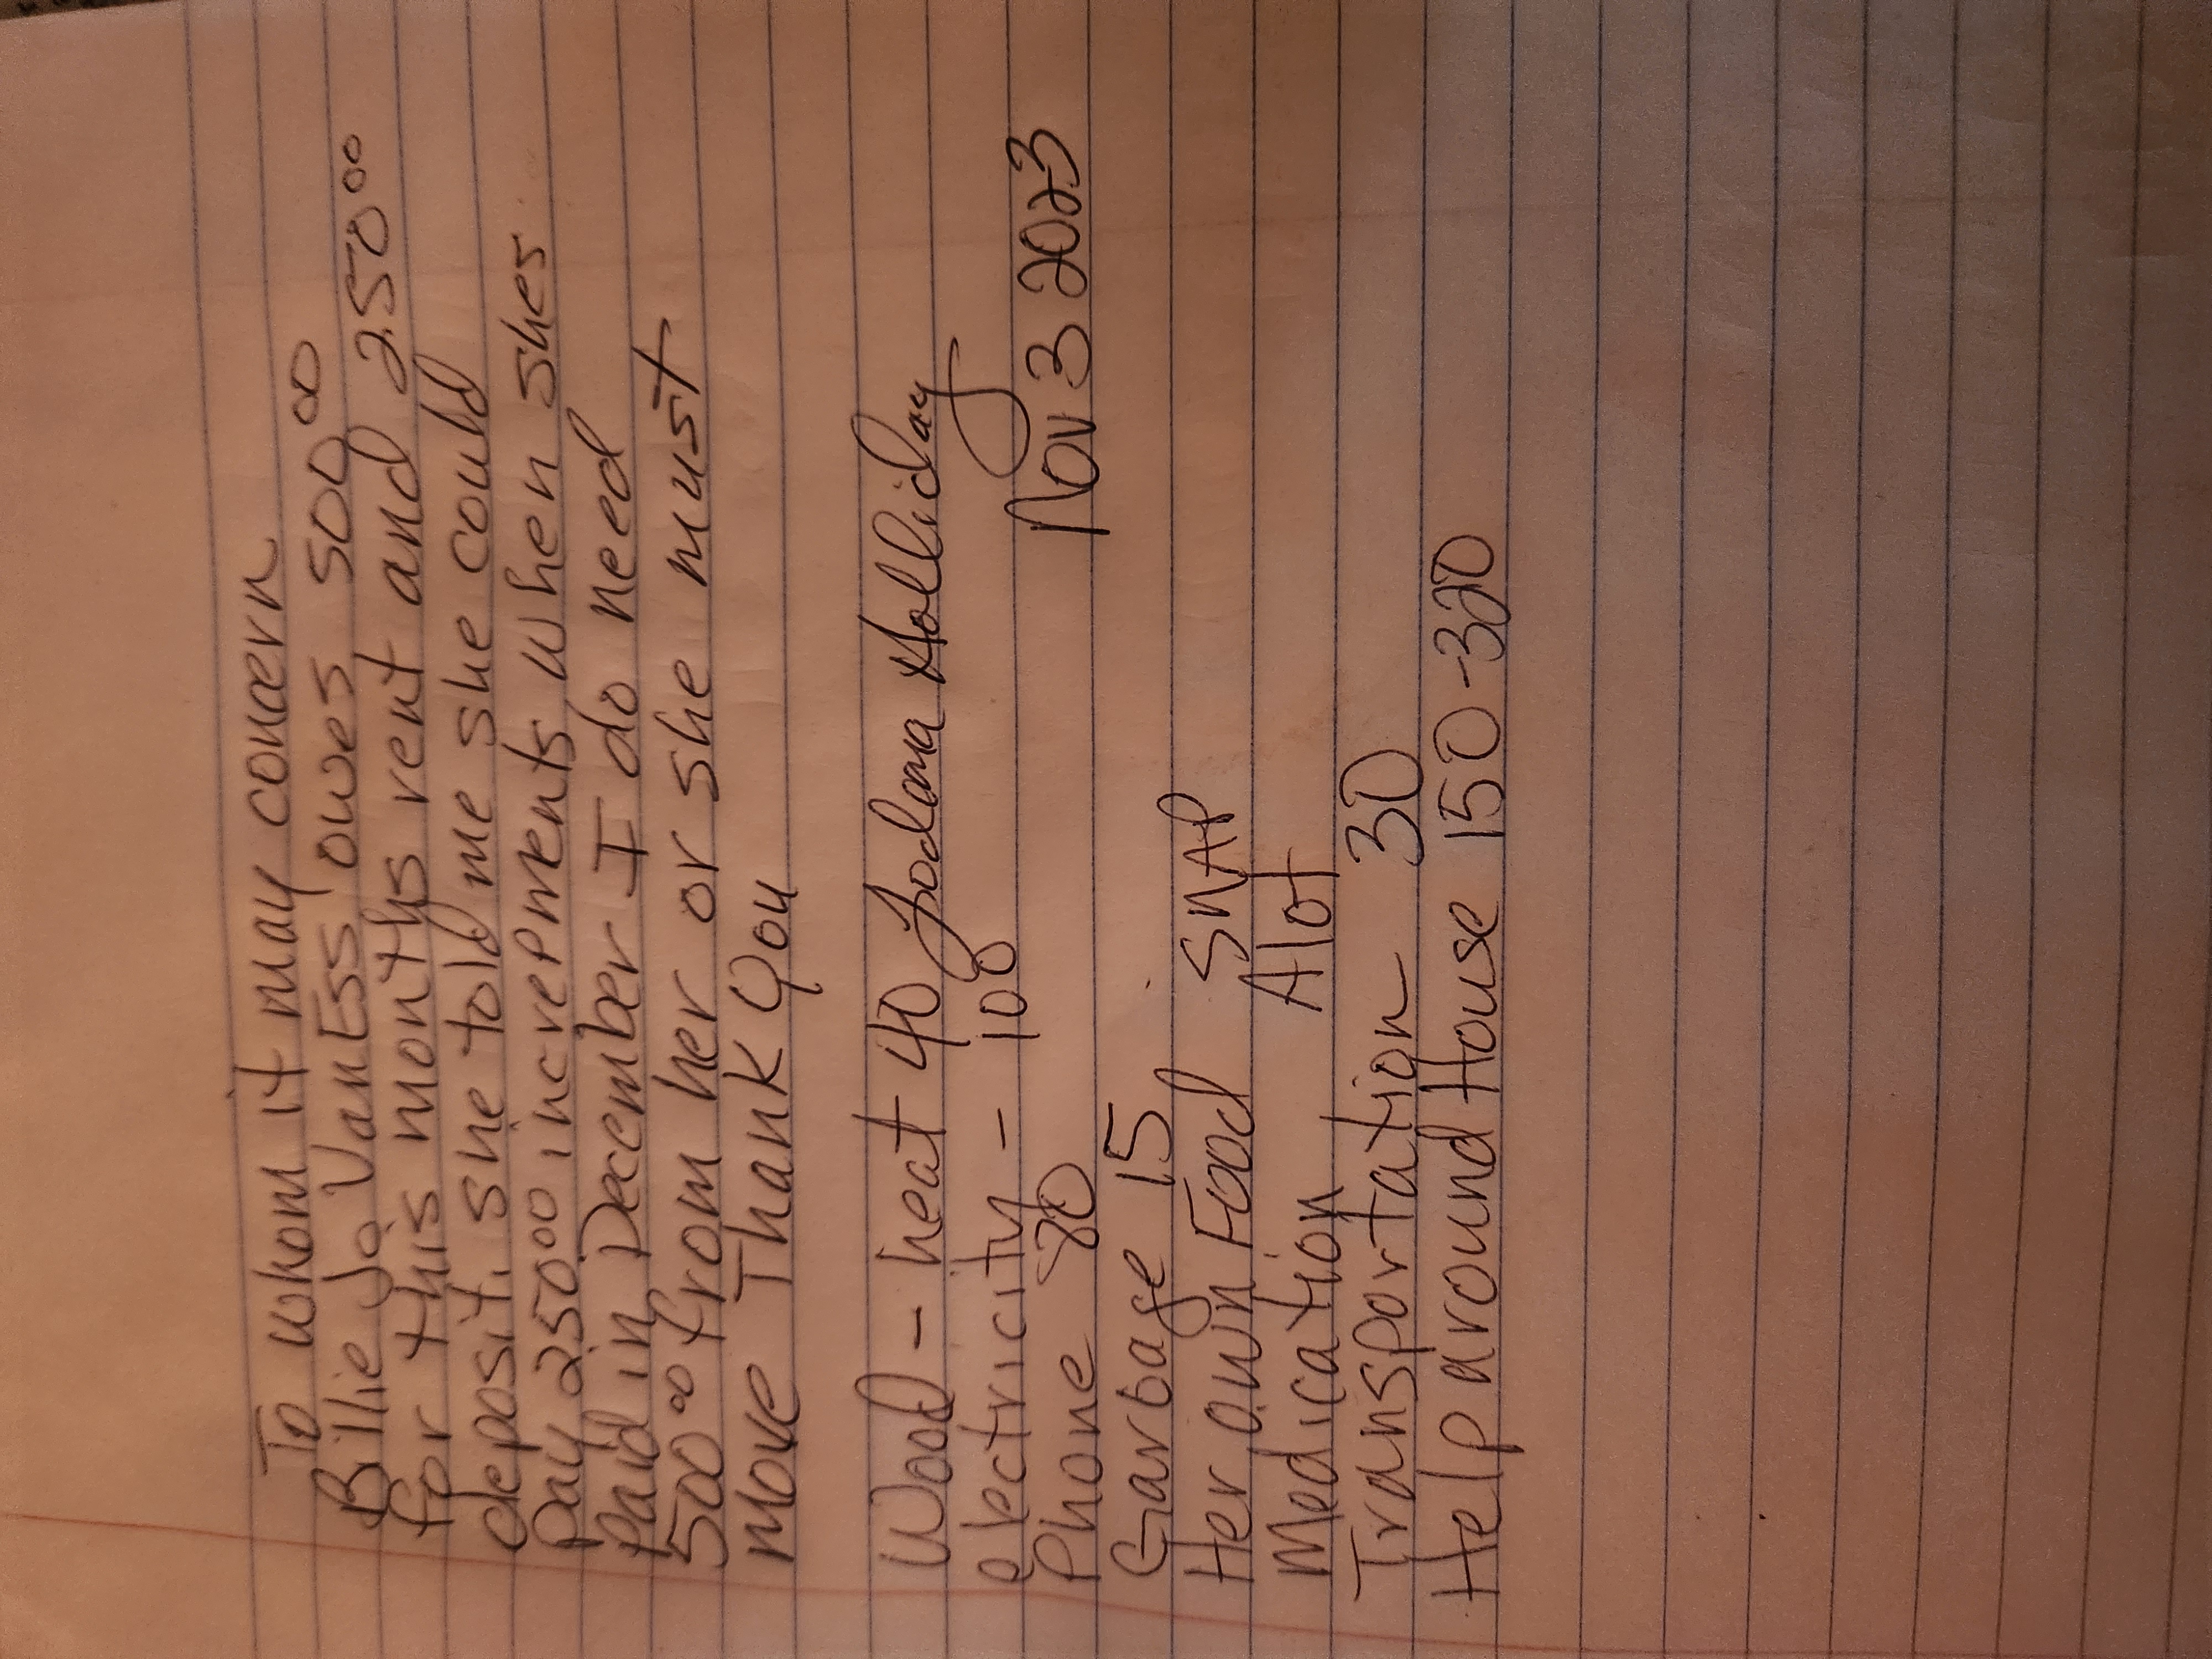 To whom it may concern
Billie Jo VanEss owes 500 00
for this months rent and 250 00
deposit. she told me she could
pay 250 00 increpments when shes
Paid in December I do need
500 00 from her or she must
move Thank You
Wood - heat 40 Jodana Holliday
electricity - 100 Nov 3 2023
Phone 80
Garbage 15
Her own Food SNAP
Medication Alot
Transportation 30
Help around House 150-320